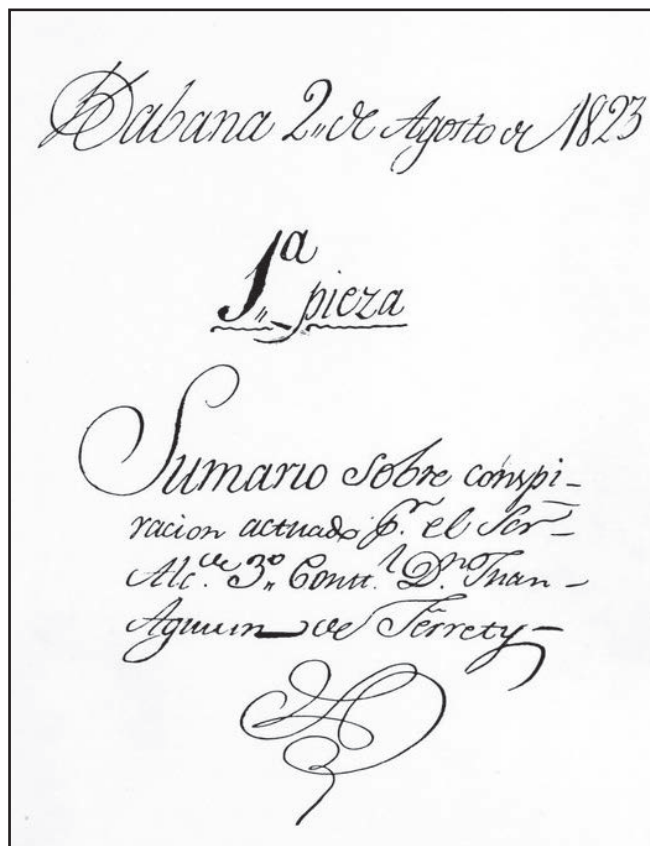 Habana 2,, de Agosto de 1823
1,,ª pieza
Sumario sobre conspi-
racion actuado p.r el Sor
Alc.de 3,,º Constl. Dn. Juan
Agustin de Ferrety